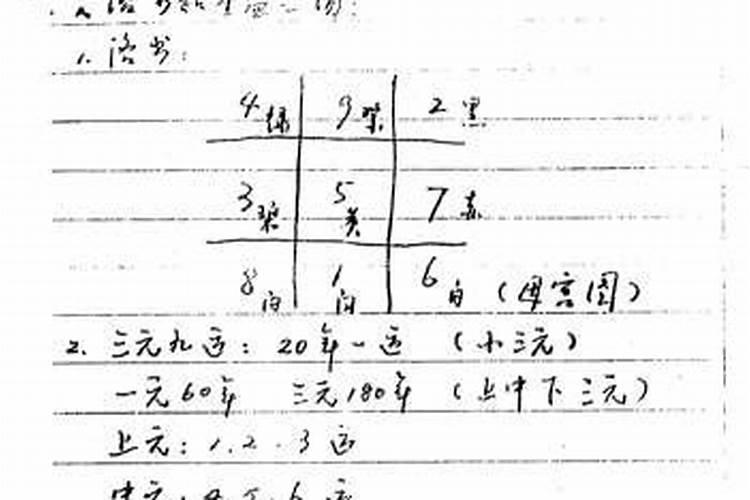 1. 洛书:
4绿 9紫 2黑
3碧 5黄 7赤
8白 1白 6白 (母宫图)
2. 三元九运: 20年一运 (小三元)
一元60年 三元180年 (上中下三元)
上元: 1.2.3运
中元: 4.5.6运